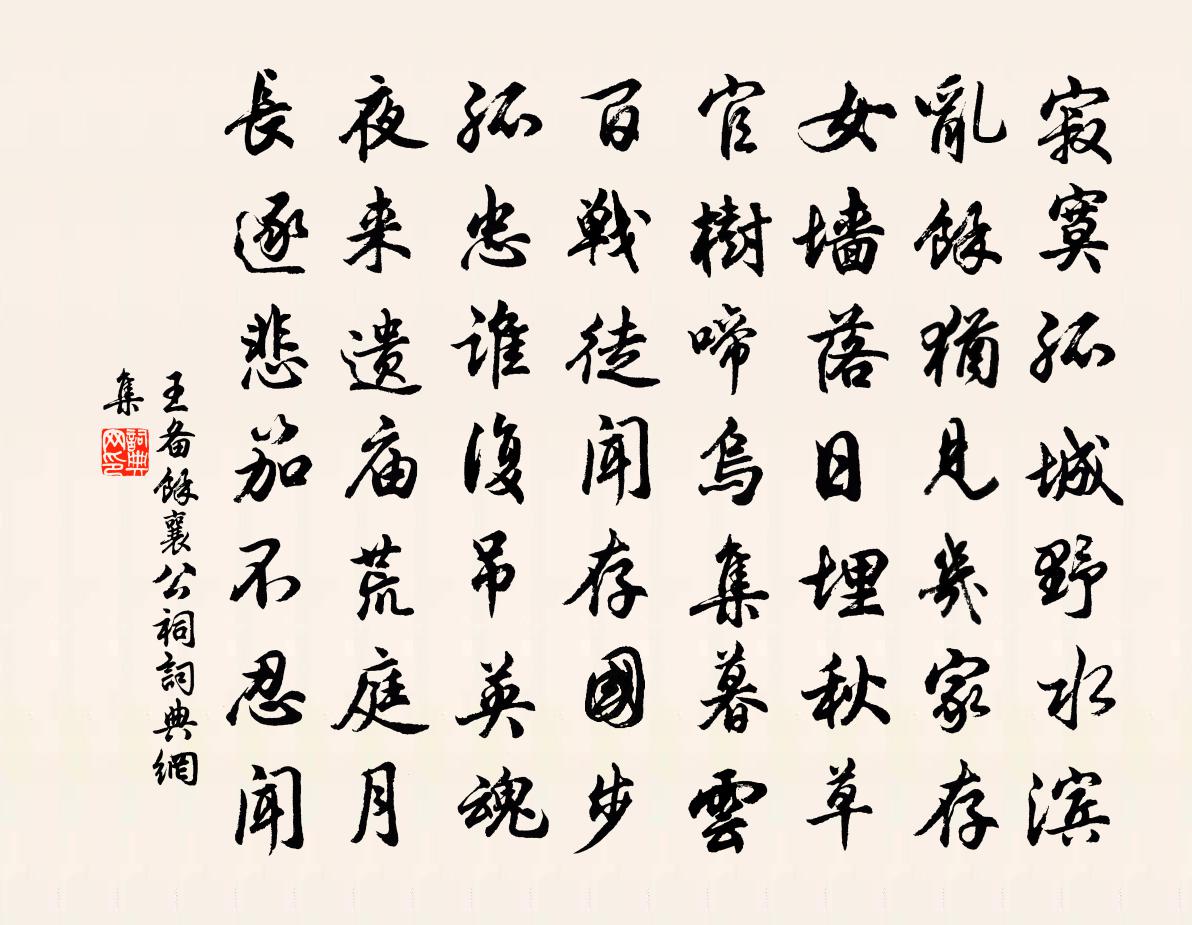 寂寞孤城野水滨
亂餘猶見幾家存
女墙落日埋秋草
官樹啼烏集暮雲
百戰徒聞存國步
孤忠誰復吊英魂
夜来遗庙荒庭月
長逐悲笳不忍聞
王备餘襄公祠詞典網
集
詞典网印